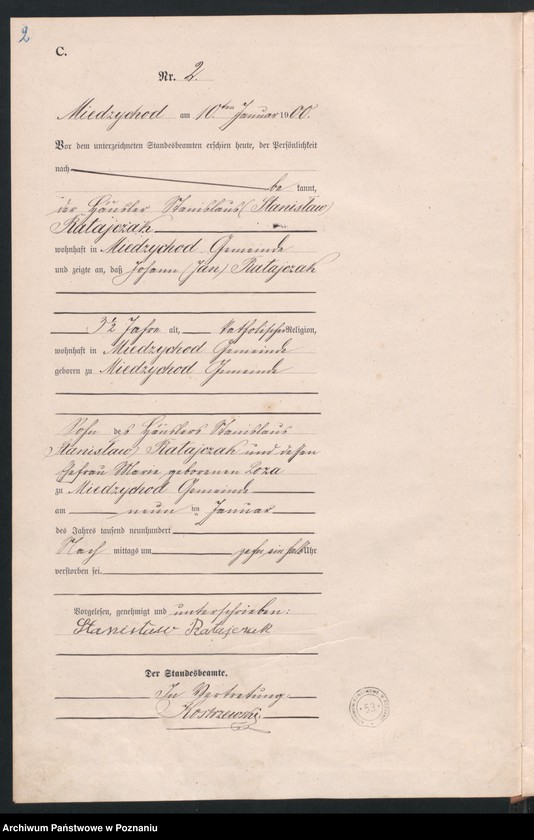 2
C.
Nr. 2.
Miedzychod am 10ten Januar 1900.
Vor dem unterzeichneten Standesbeamten erschien heute, der Persönlichkeit
nach
be kannt,
der Häusler Stanislaus (Stanisław)
Ratajczak
wohnhaft in Miedzychod Gemeinde
und zeigte an, daß Johann (Jan) Ratajczak
3½ Jahre alt, katholischer Religion,
wohnhaft in Miedzychod Gemeinde
geboren zu Miedzychod Gemeinde
Sohn des Häuslers Stanislaus
(Stanisław) Ratajczak und dessen
Ehefrau Marie geborenen Loza
zu Miedzychod Gemeinde
am neun ten Januar
des Jahres tausend neunhundert
Nach mittags um zehn ein halb Uhr
verstorben sei.
Vorgelesen, genehmigt und unterschrieben:
Stanisław Ratajczak
Der Standesbeamte.
In Vertretung.
Kostrzewski.
53
Archiwum Państwowe w Poznaniu